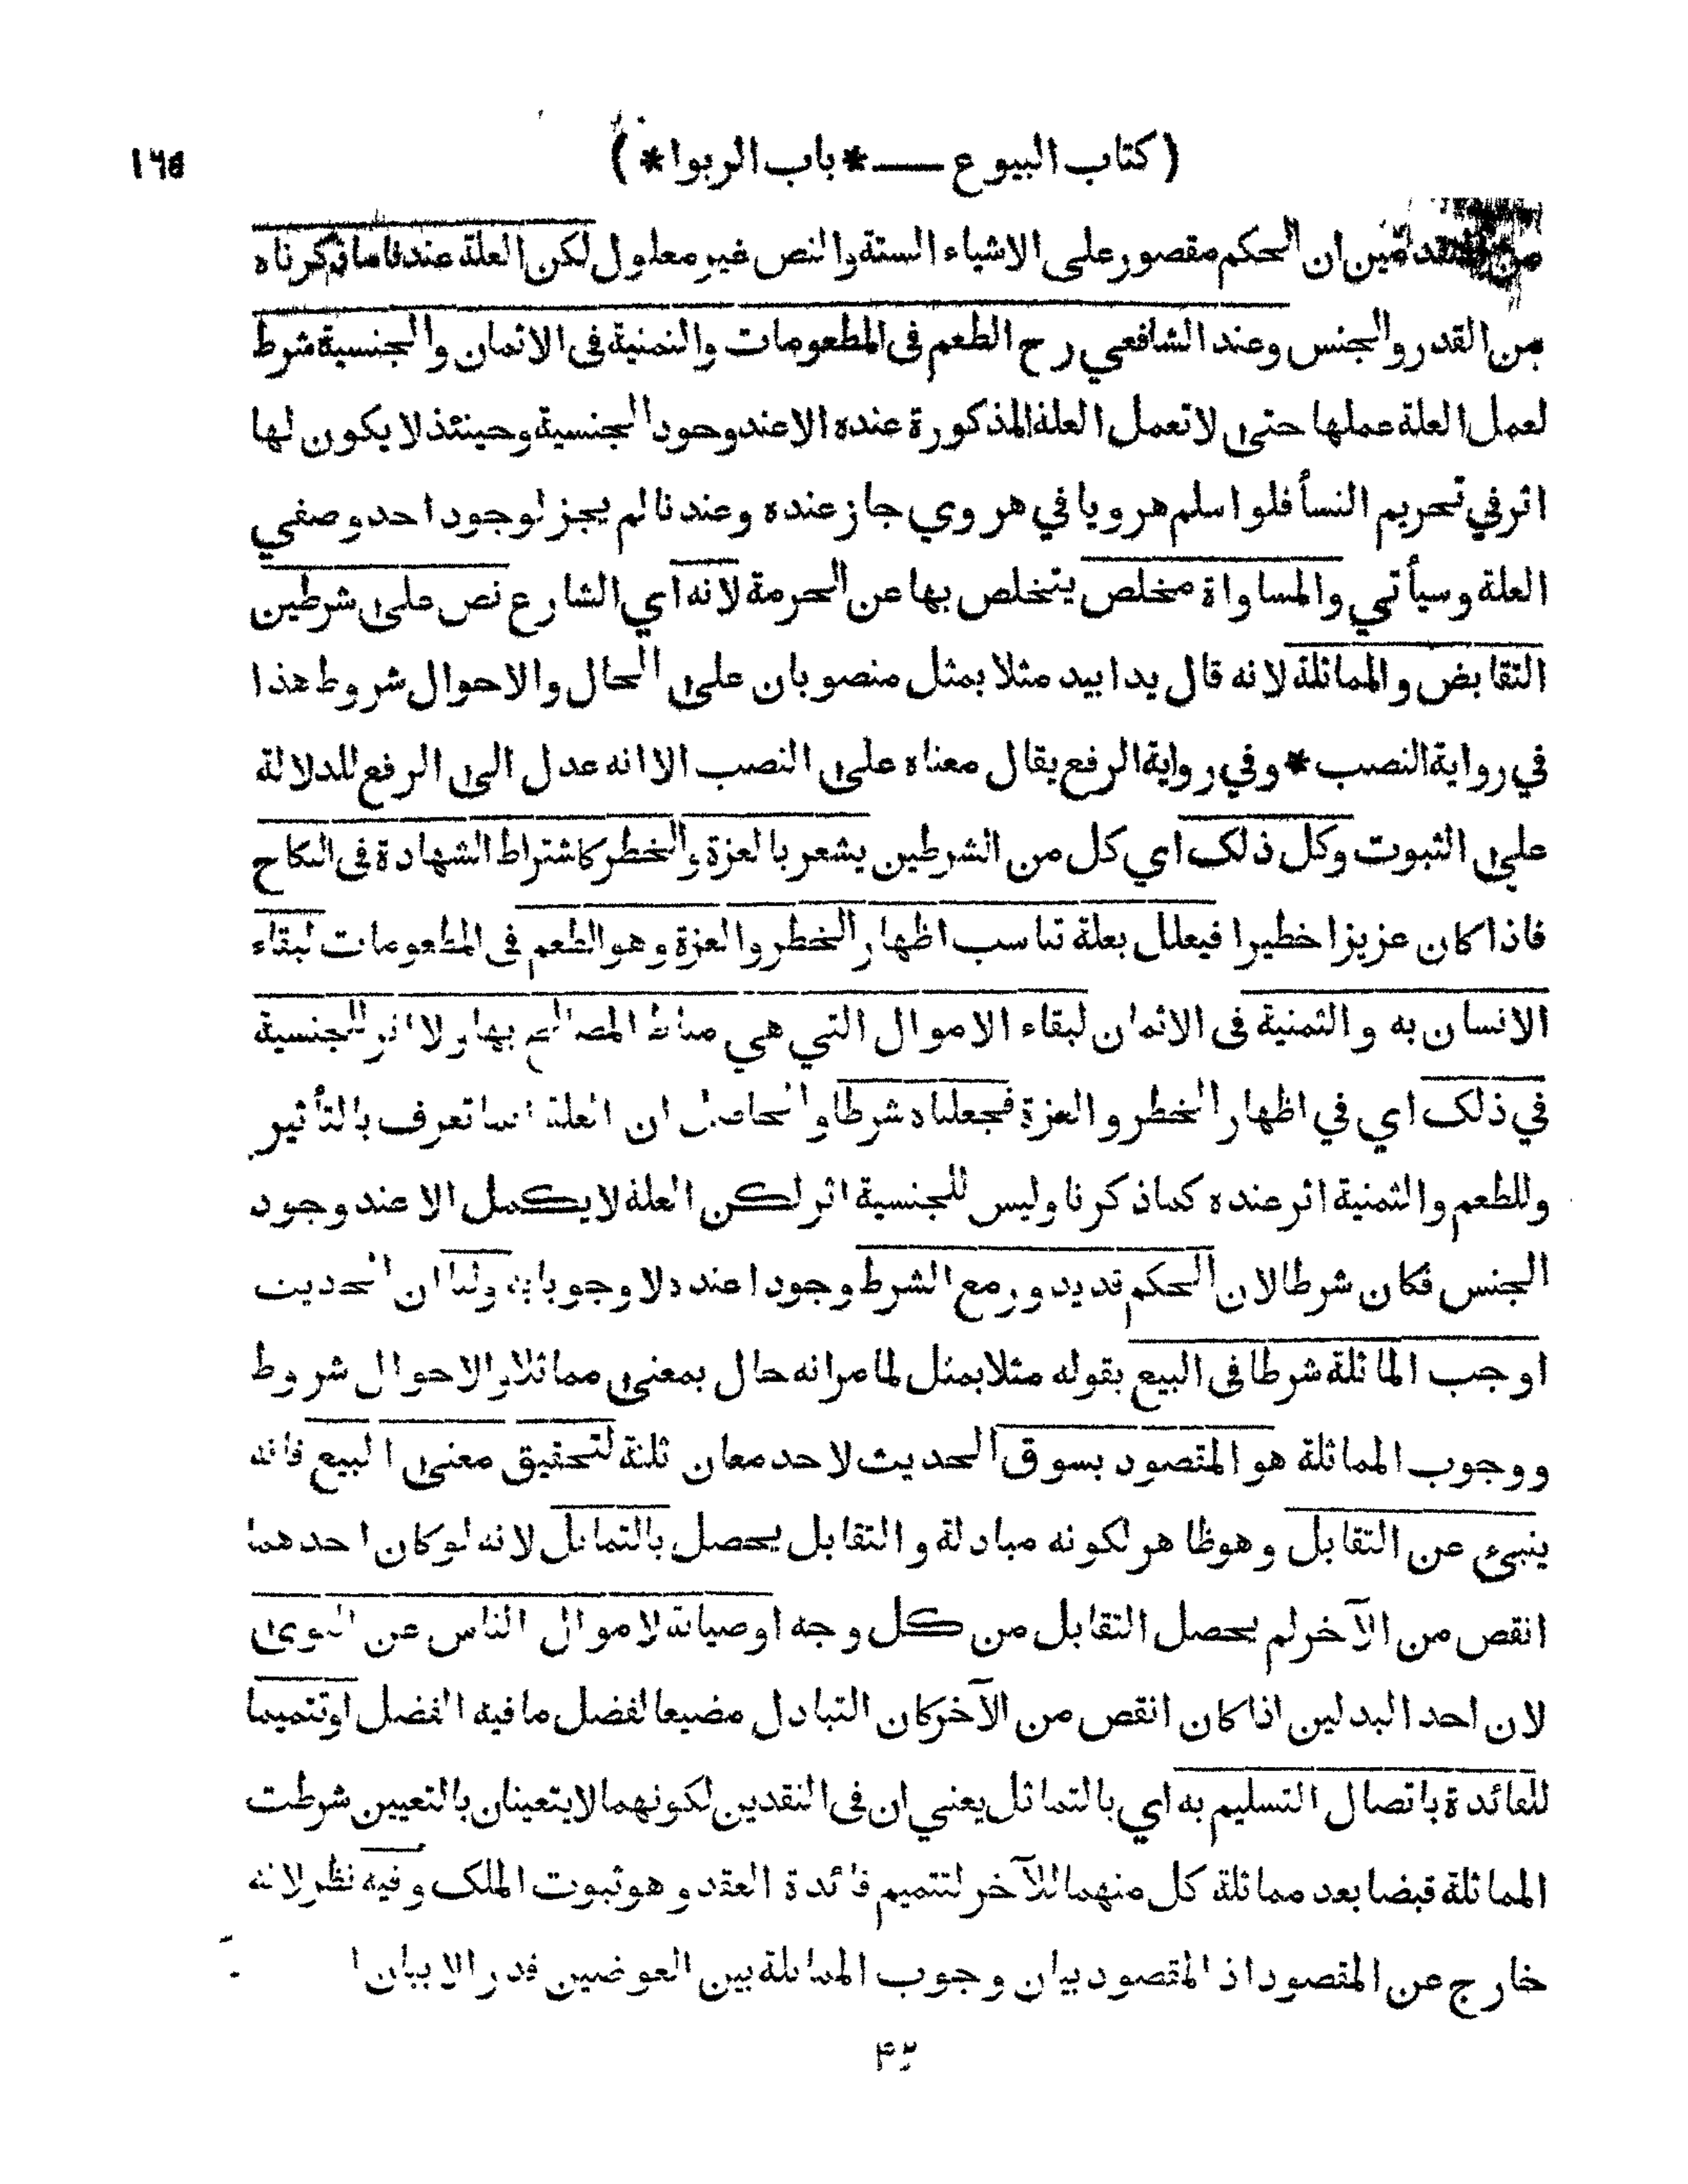 (كتاب البيوع — *باب الربوا*) ١٦٥
من المتقدمين ان الحكم مقصور على الاشياء الستة والنص غير معلول لكن العلة عندنا ما ذكرناه
من القدر والجنس وعند الشافعي رح الطعم فى المطعومات والثمنية فى الاثمان والجنسية شرط
لعمل العلة عملها حتى لا تعمل العلة المذكورة عنده الا عند وجود الجنسية وحينئذ لا يكون لها
اثر في تحريم النسأ فلو اسلم هرويا في هروي جاز عنده وعندنا لم يجز لوجود احد وصفي
العلة وسيأتي والمساواة مخلص يتخلص بها عن الحرمة لانه اي الشارع نص على شرطين
التقابض والمماثلة لانه قال يدا بيد مثلا بمثل منصوبان على الحال والاحوال شروط هذا
في رواية النصب * وفي رواية الرفع يقال معناه على النصب الا انه عدل الى الرفع للدلالة
على الثبوت وكل ذلك اي كل من الشرطين يشعر بالعزة والخطر كاشتراط الشهادة فى النكاح
فاذا كان عزيزا خطيرا فيعلل بعلة تناسب اظهار الخطر والعزة وهو الطعم فى المطعومات لبقاء
الانسان به والثمنية فى الاثمان لبقاء الاموال التي هي مناط المصالح بها ولا اثر للجنسية
في ذلك اي في اظهار الخطر والعزة فجعلناه شرطا والحاصل ان العلة انما تعرف بالتأثير
وللطعم والثمنية اثر عنده كما ذكرنا وليس للجنسية اثر لكن العلة لا يكمل الا عند وجود
الجنس فكان شرطا لان الحكم قد يدور مع الشرط وجودا عنده لا وجوبا به ولنا ان الحديث
اوجب المماثلة شرطا فى البيع بقوله مثلا بمثل لما مر انه حال بمعنى مماثلا والاحوال شروط
ووجوب المماثلة هو المقصود بسوق الحديث لاحد معان ثلثة لتحقيق معنى البيع فانه
ينبئ عن التقابل وهو ظاهر لكونه مبادلة والتقابل يحصل بالتماثل لانه لو كان احدهما
انقص من الآخر لم يحصل التقابل من كل وجه او صيانة لاموال الناس عن التوى
لان احد البدلين اذا كان انقص من الآخر كان التبادل مضيعا لفضل ما فيه الفضل او تتميما
للفائدة باتصال التسليم به اي بالتماثل يعني ان فى النقدين لكونهما لا يتعينان بالتعيين شرطت
المماثلة قبضا بعد مماثلة كل منهما للآخر لتتميم فائدة العقد وهو ثبوت الملك وفيه نظر لانه
خارج عن المقصود اذ المقصود بيان وجوب المماثلة بين العوضين قدرا لا بيان ا
٤٢